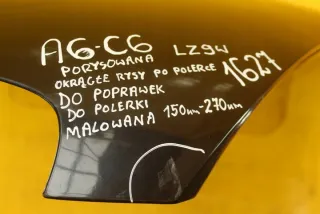 A6-C6 LZ9W
PORYSOWANA
OKRĄGŁE RYSY PO POLERCE 1627
DO POPRAWEK
DO POLERKI
MALOWANA 150um-270um